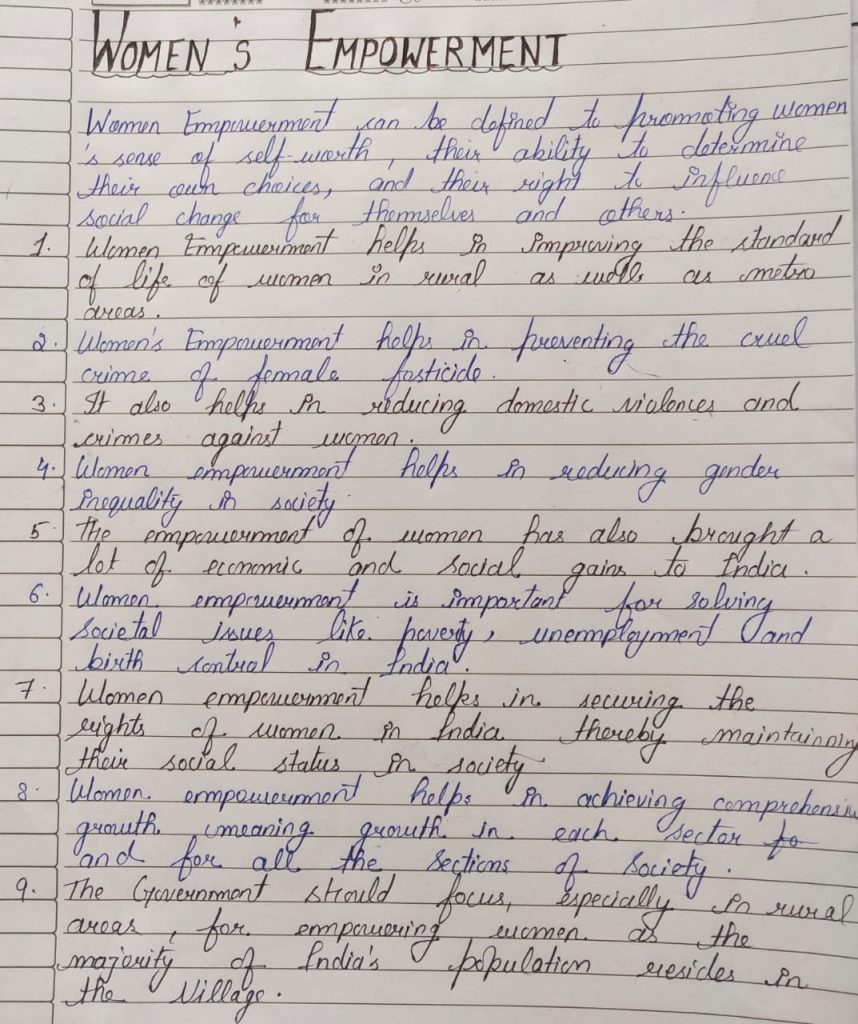 WOMEN'S EMPOWERMENT
Women Empowerment can be defined to promoting women
's sense of self-worth, their ability to determine
their own choices, and their right to influence
social change for themselves and others.
1. Women Empowerment helps in improving the standard
of life of women in rural as wells as metro
areas.
2. Women's Empowerment helps in preventing the cruel
crime of female fosticide.
3. It also helps in reducing domestic violences and
crimes against women.
4. Women empowerment helps in reducing gender
inequality in society
5 The empowerment of women has also brought a
lot of economic and social gains to India.
6. Women empowerment is important for solving
societal issues like poverty, unemployment and
birth control in India.
7. Women empowerment helps in securing the
rights of women in India thereby maintainning
their social status in society
8. Women empowerment helps in achieving comprehensive
growth meaning growth in each sector fo
and for all the sections of society.
9. The Government should focus, especially in rural
areas, for empowering women as the
majority of India's population resides in
the Village.